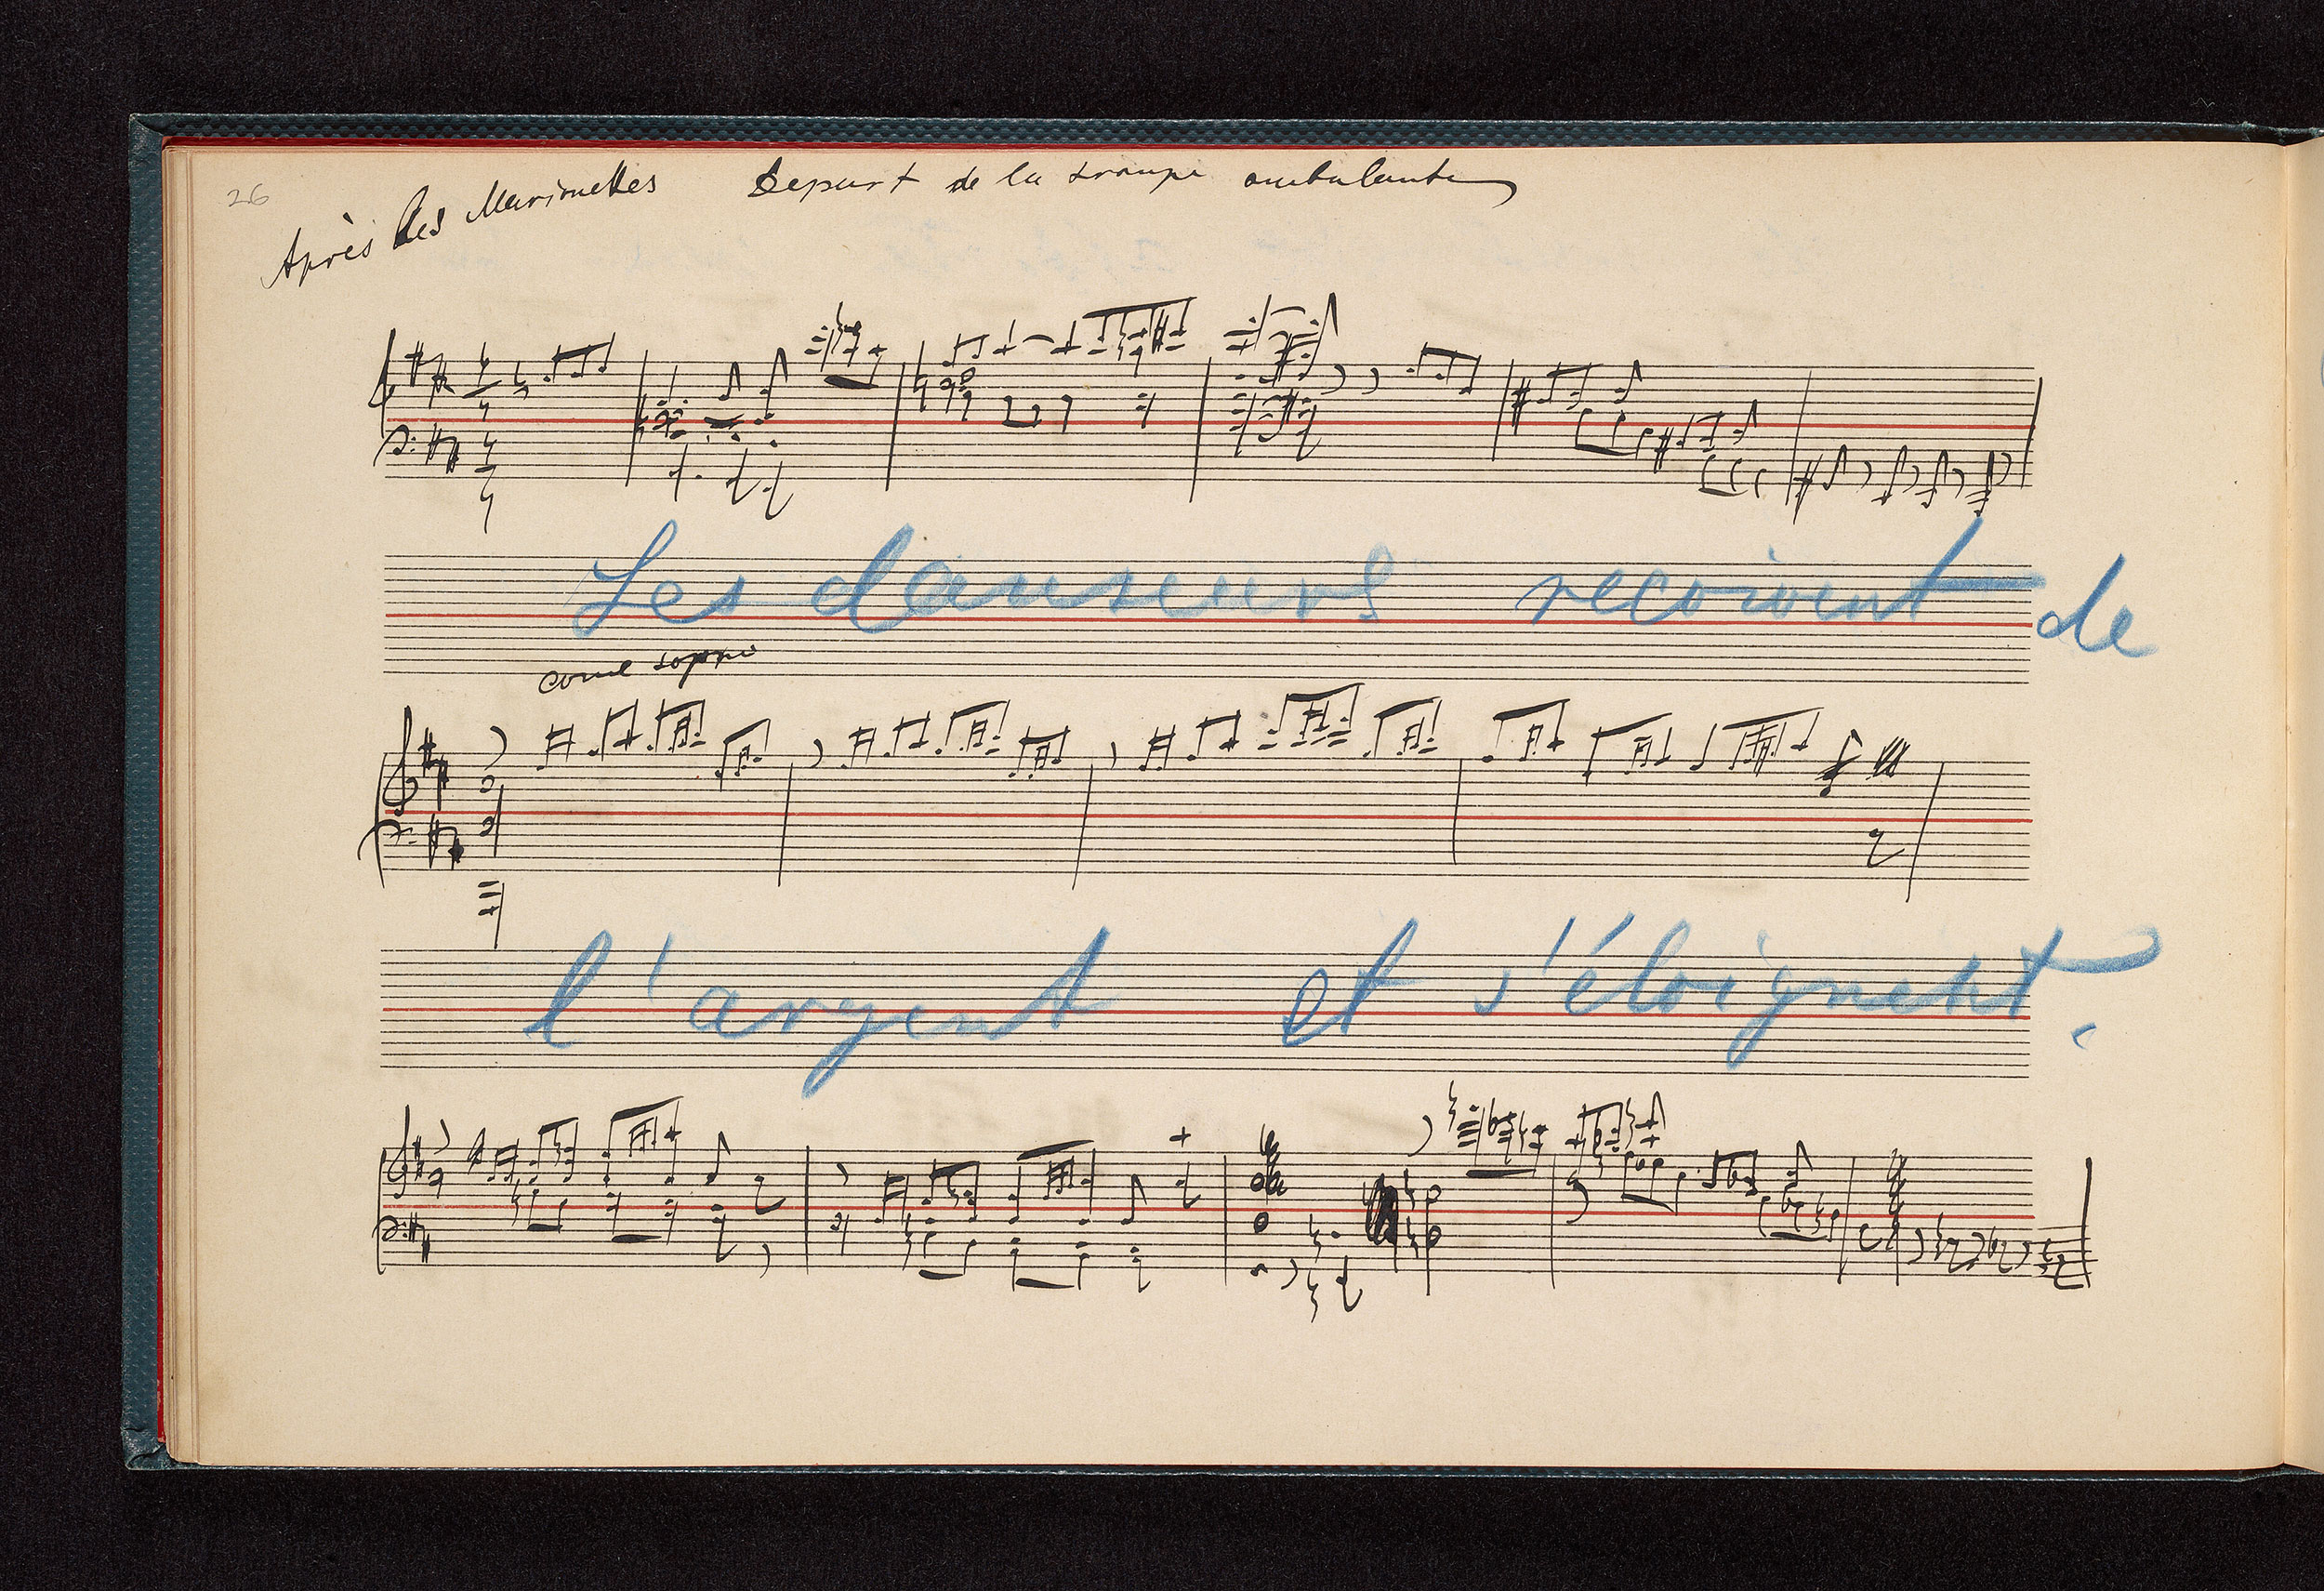 26
Après les Marionettes Depart de la troupe ambulante
Les danseurs recoivent de
come sopra
l'argent et s'éloignent.